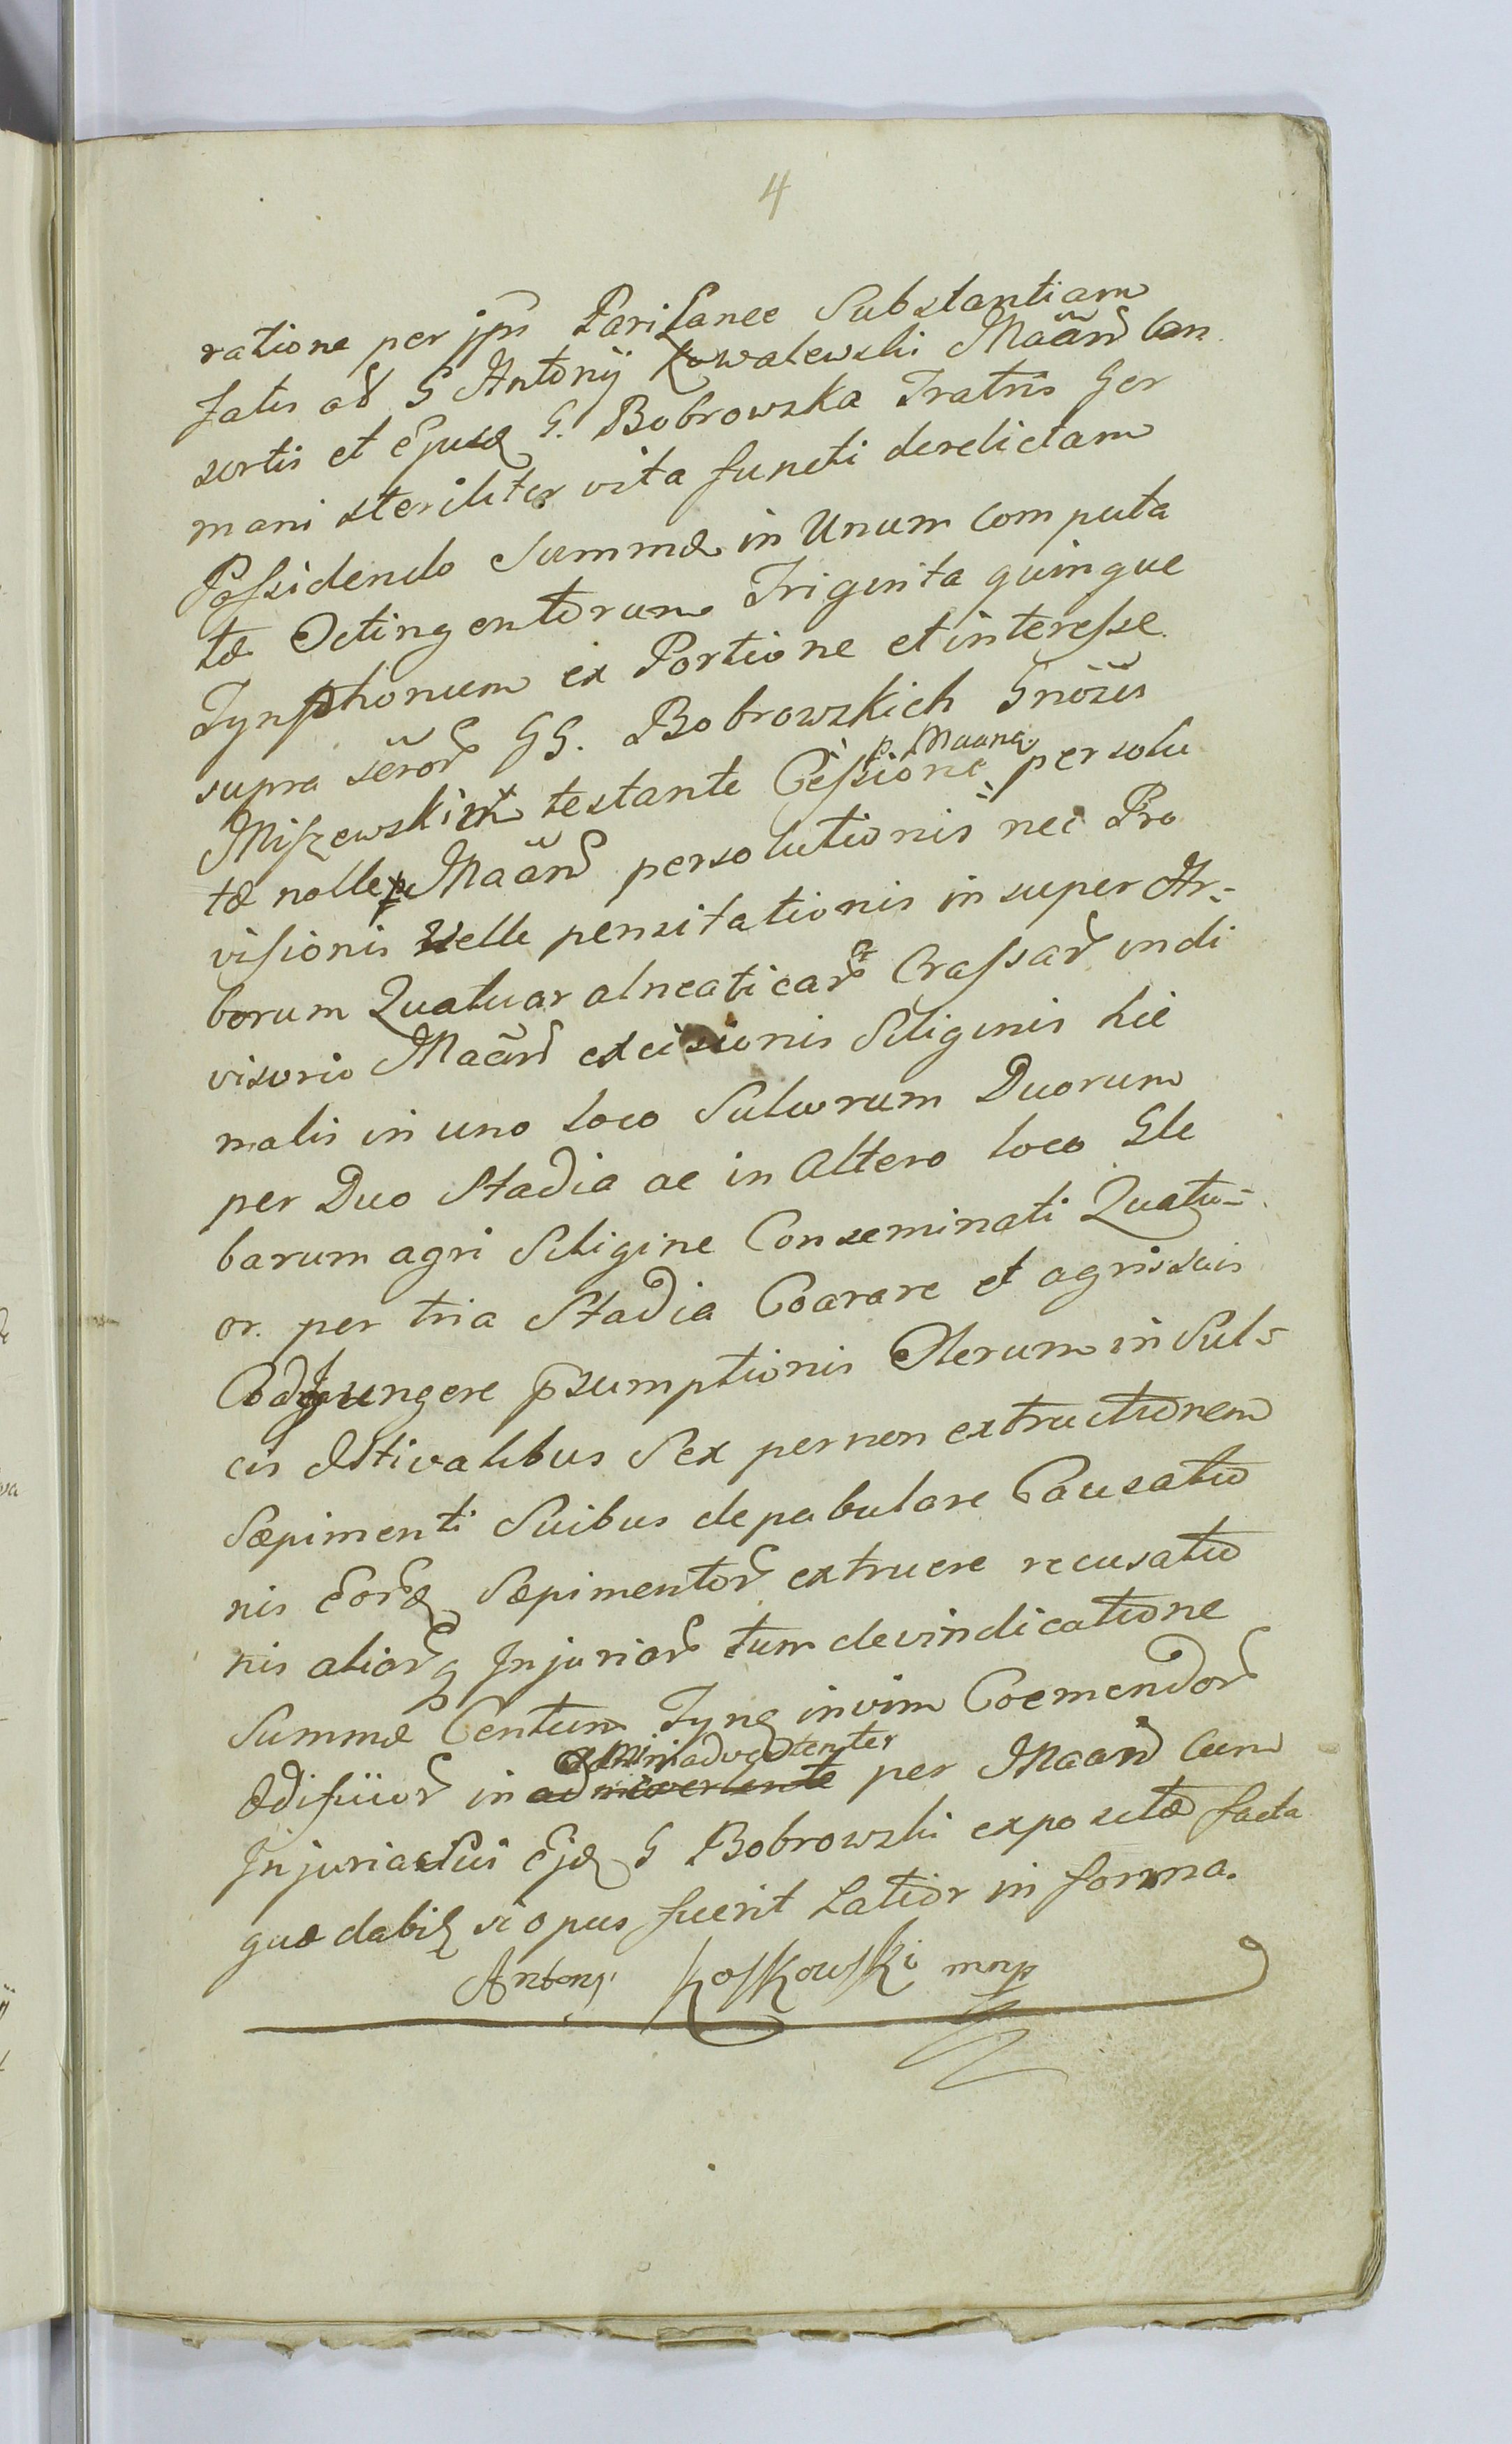 4
ratione per jpm Pariſanee Substantiam
fatis ad G Antonÿ Kowalewski Maãrd Con
sortis et Ejusd G. Bobrowska Fratris Ger
mani steriliter vita functi derelictam
Poſsidendo Summæ in Unum Computa
tæ Octingentorum Triginta quinque
Tynphonum ex Portione et intereſse
supra sẽror GG. Bobrowskich Gnõsis
Miſzewskim testante Ceſsione p. Maana persolu
tæ nolle p Maãrd persolutionis nec Pro
viſionis velle pensitationis in super Ar-
borum Quatuor alneaticar et Craſsar indi
visorio Maãrd excisionis Siliginis hie
malis in uno Loco Sulcorum Duorum
per Duo Stadia ac in altero loco Gle
barum agri Siligine Conseminati Quatu-
or. per tria Stadia Coarare et agris suis
Coadjungere p̄sumptionis Olerum in Sul-
cis Æstivalibus Sex per non extructionem
Sæpimenti Suibus depabulare Causatio
nis Eord Sæpimentor extruere recusatio
nis aliorq Injuriar tum devindicatione
Summæ Centum Tynf in vim Coemendor
Ædificior in adnivertente animadvertenter per Maard Cum
Injuria Sui Ejd G Bobrowski expositæ facta
quæ dabit si opus fuerit Latior in forma.
Antoni Koſkowſki mnp